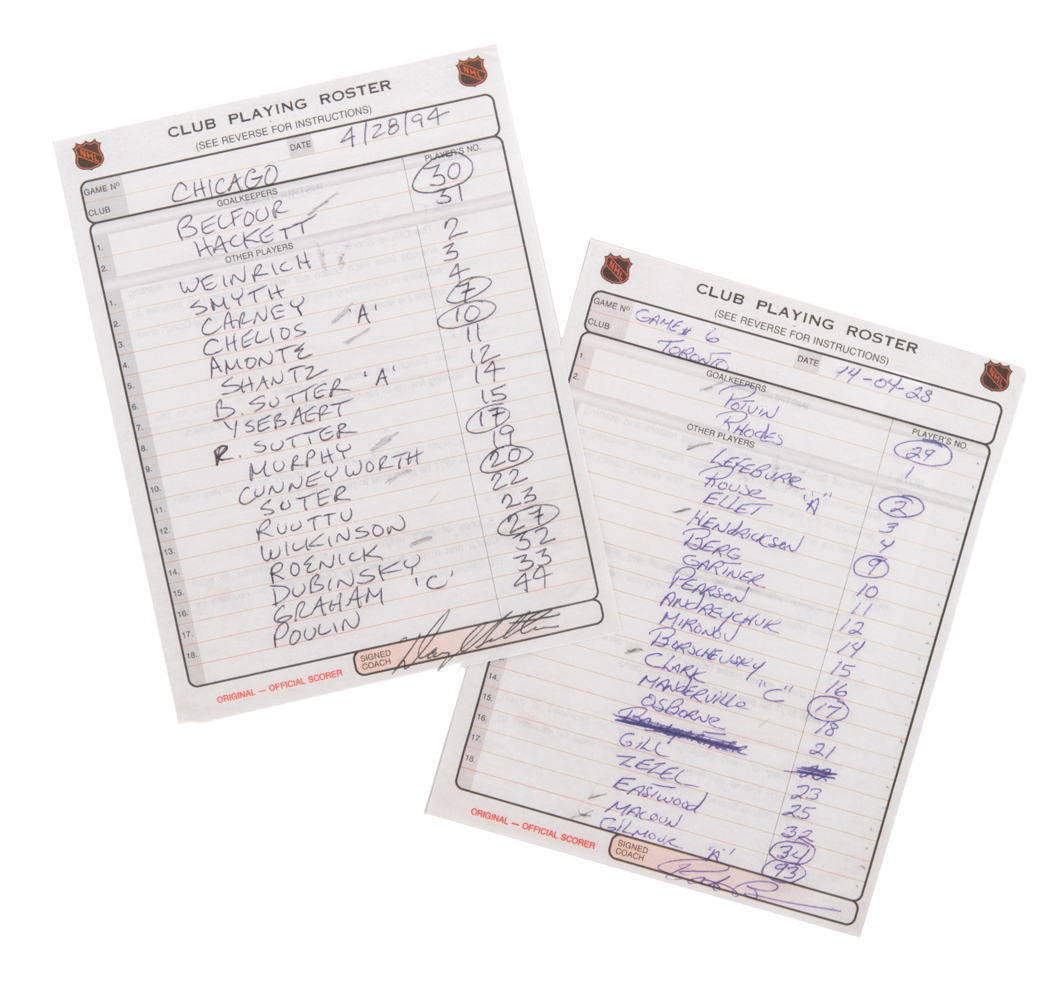 NHL
CLUB PLAYING ROSTER
NHL
(SEE REVERSE FOR INSTRUCTIONS)
GAME Nº DATE 4/28/94
CLUB CHICAGO PLAYER'S NO.
GOALKEEPERS
1. BELFOUR 30
2. HACKETT 31
OTHER PLAYERS
1. WEINRICH 2
2. SMYTH 3
3. CARNEY 4
4. CHELIOS 'A' 7
5. AMONTE 10
6. SHANTZ 11
7. B. SUTTER 'A' 12
8. YSEBAERT 14
9. R. SUTTER 15
10. MURPHY 17
11. CUNNEYWORTH 19
12. SUTER 20
13. RUUTTU 22
14. WILKINSON 23
15. ROENICK 27
16. DUBINSKY 32
17. GRAHAM 'C' 33
18. POULIN 44
SIGNED
COACH
ORIGINAL — OFFICIAL SCORER
NHL
CLUB PLAYING ROSTER
NHL
(SEE REVERSE FOR INSTRUCTIONS)
GAME Nº GAME# 6 DATE 14-04-28
CLUB TORONTO PLAYER'S NO.
GOALKEEPERS
1. POTVIN 29
2. RHODES 1
OTHER PLAYERS
LEFEBURE "A" 2
ROUSE 3
ELLET 4
HENDRICKSON 9
BERG 10
GARTNER 11
PEARSON 12
ANDREYCHUK 14
MIRONOV 15
BORSCHEVSKY 16
CLARK "C" 17
MANDERVILLE 18
OSBORNE 21
14.
15. GILL 23
16. ZEZEL 25
17. EASTWOOD 32
18. MACOUN 34
GILMOUR 'A' 93
SIGNED
COACH
ORIGINAL — OFFICIAL SCORER